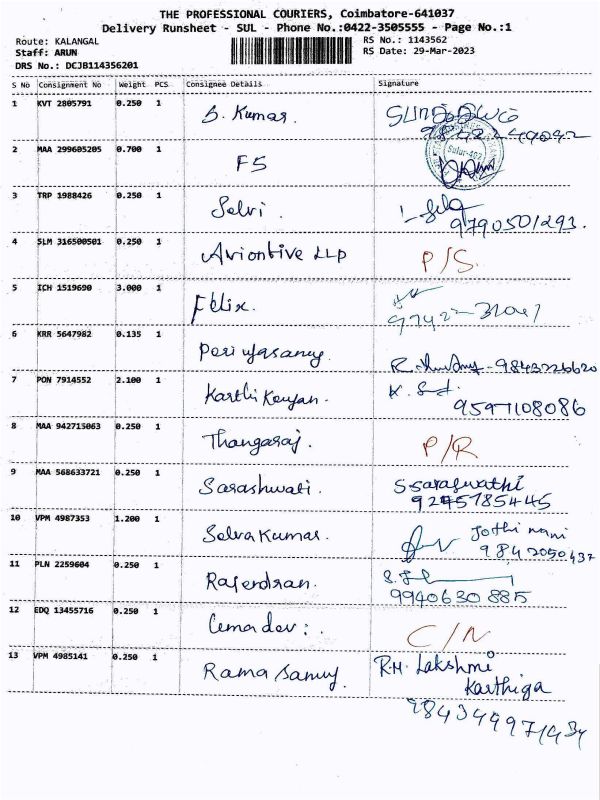 THE PROFESSIONAL COURIERS, Coimbatore-641037
Delivery Runsheet - SUL - Phone No.:0422-3505555 - Page No.:1
Route: KALANGAL RS No.: 1143562
Staff: ARUN RS Date: 29-Mar-2023
DRS No.: DCJB114356201
S No Consignment No Weight PCS Consignee Details Signature
1 KVT 2805791 0.250 1 S. Kumar.
2 MAA 299605205 0.700 1 F5
Sulur-402
3 TRP 1988426 0.250 1 Selvi .
9790501293.
4 SLM 316500501 0.250 1 Aviontive LLP P/S.
5 ICH 1519690 3.000 1 Felix.
6 KRR 5647982 0.135 1 Periyasamy
7 PON 7914552 2.100 1 Karthikeyan.
9597108086
8 MAA 942715063 0.250 1 Thangaraj. P/R
9 MAA 568633721 0.250 1 Sarashwati. S Saraswathi
9245785445
10 VPM 4987353 1.200 1 Selva Kumar. Jothi mani
9842050437
11 PLN 2259604 0.250 1 Rajendran.
9940630885
12 EDQ 13455716 0.250 1 Uma dev: . C/N
13 VPM 4985141 0.250 1 Rama Samy. R.M. Lakshmi
Karthiga